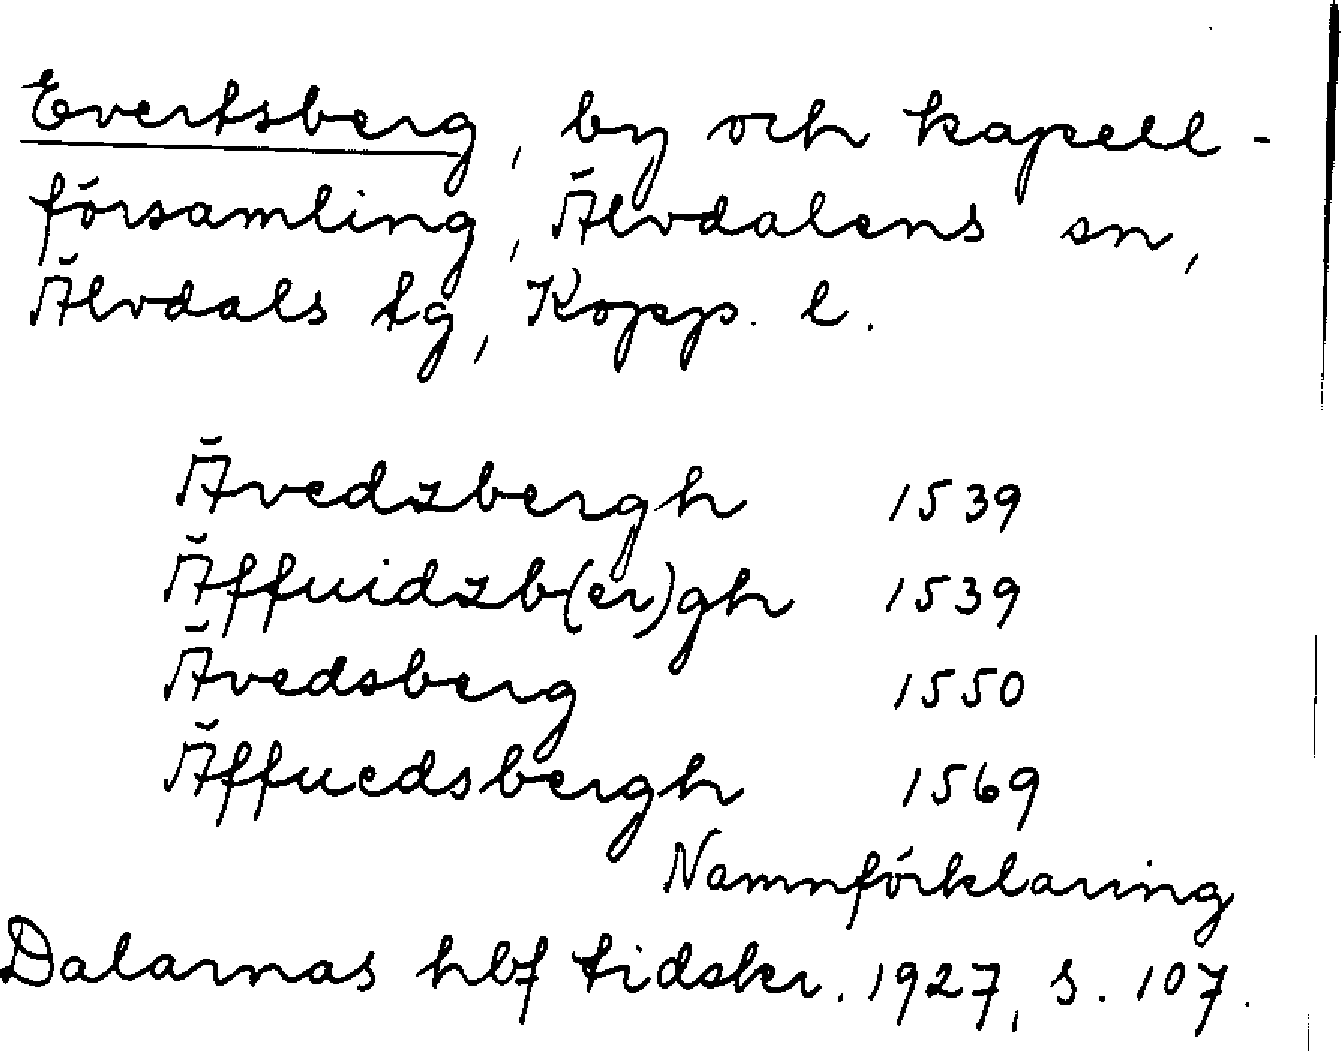 Evertsberg, by och kapell-
församling, Älvdalens sn,
Älvdals tg, Kopp. l.
Ävedzbergh 1539
Äffuidzb(er)gh 1539
Ävedsberg 1550
Äffuedsbergh 1569
Namnförklaring
Dalarnas hbf tidskr. 1927, s. 107.